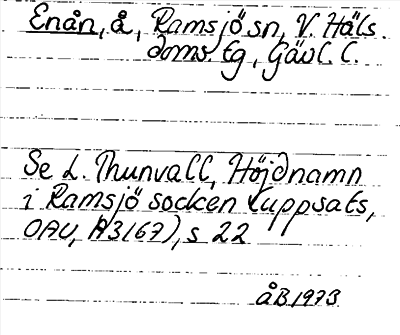 Enån, å, Ramsjö sn, V. Häls.
doms. tg, Gävl. l.
Se L. Thunvall, Höjdnamn
i Ramsjö socken (uppsats,
OAU, A3167), s 22
ÅB 1973